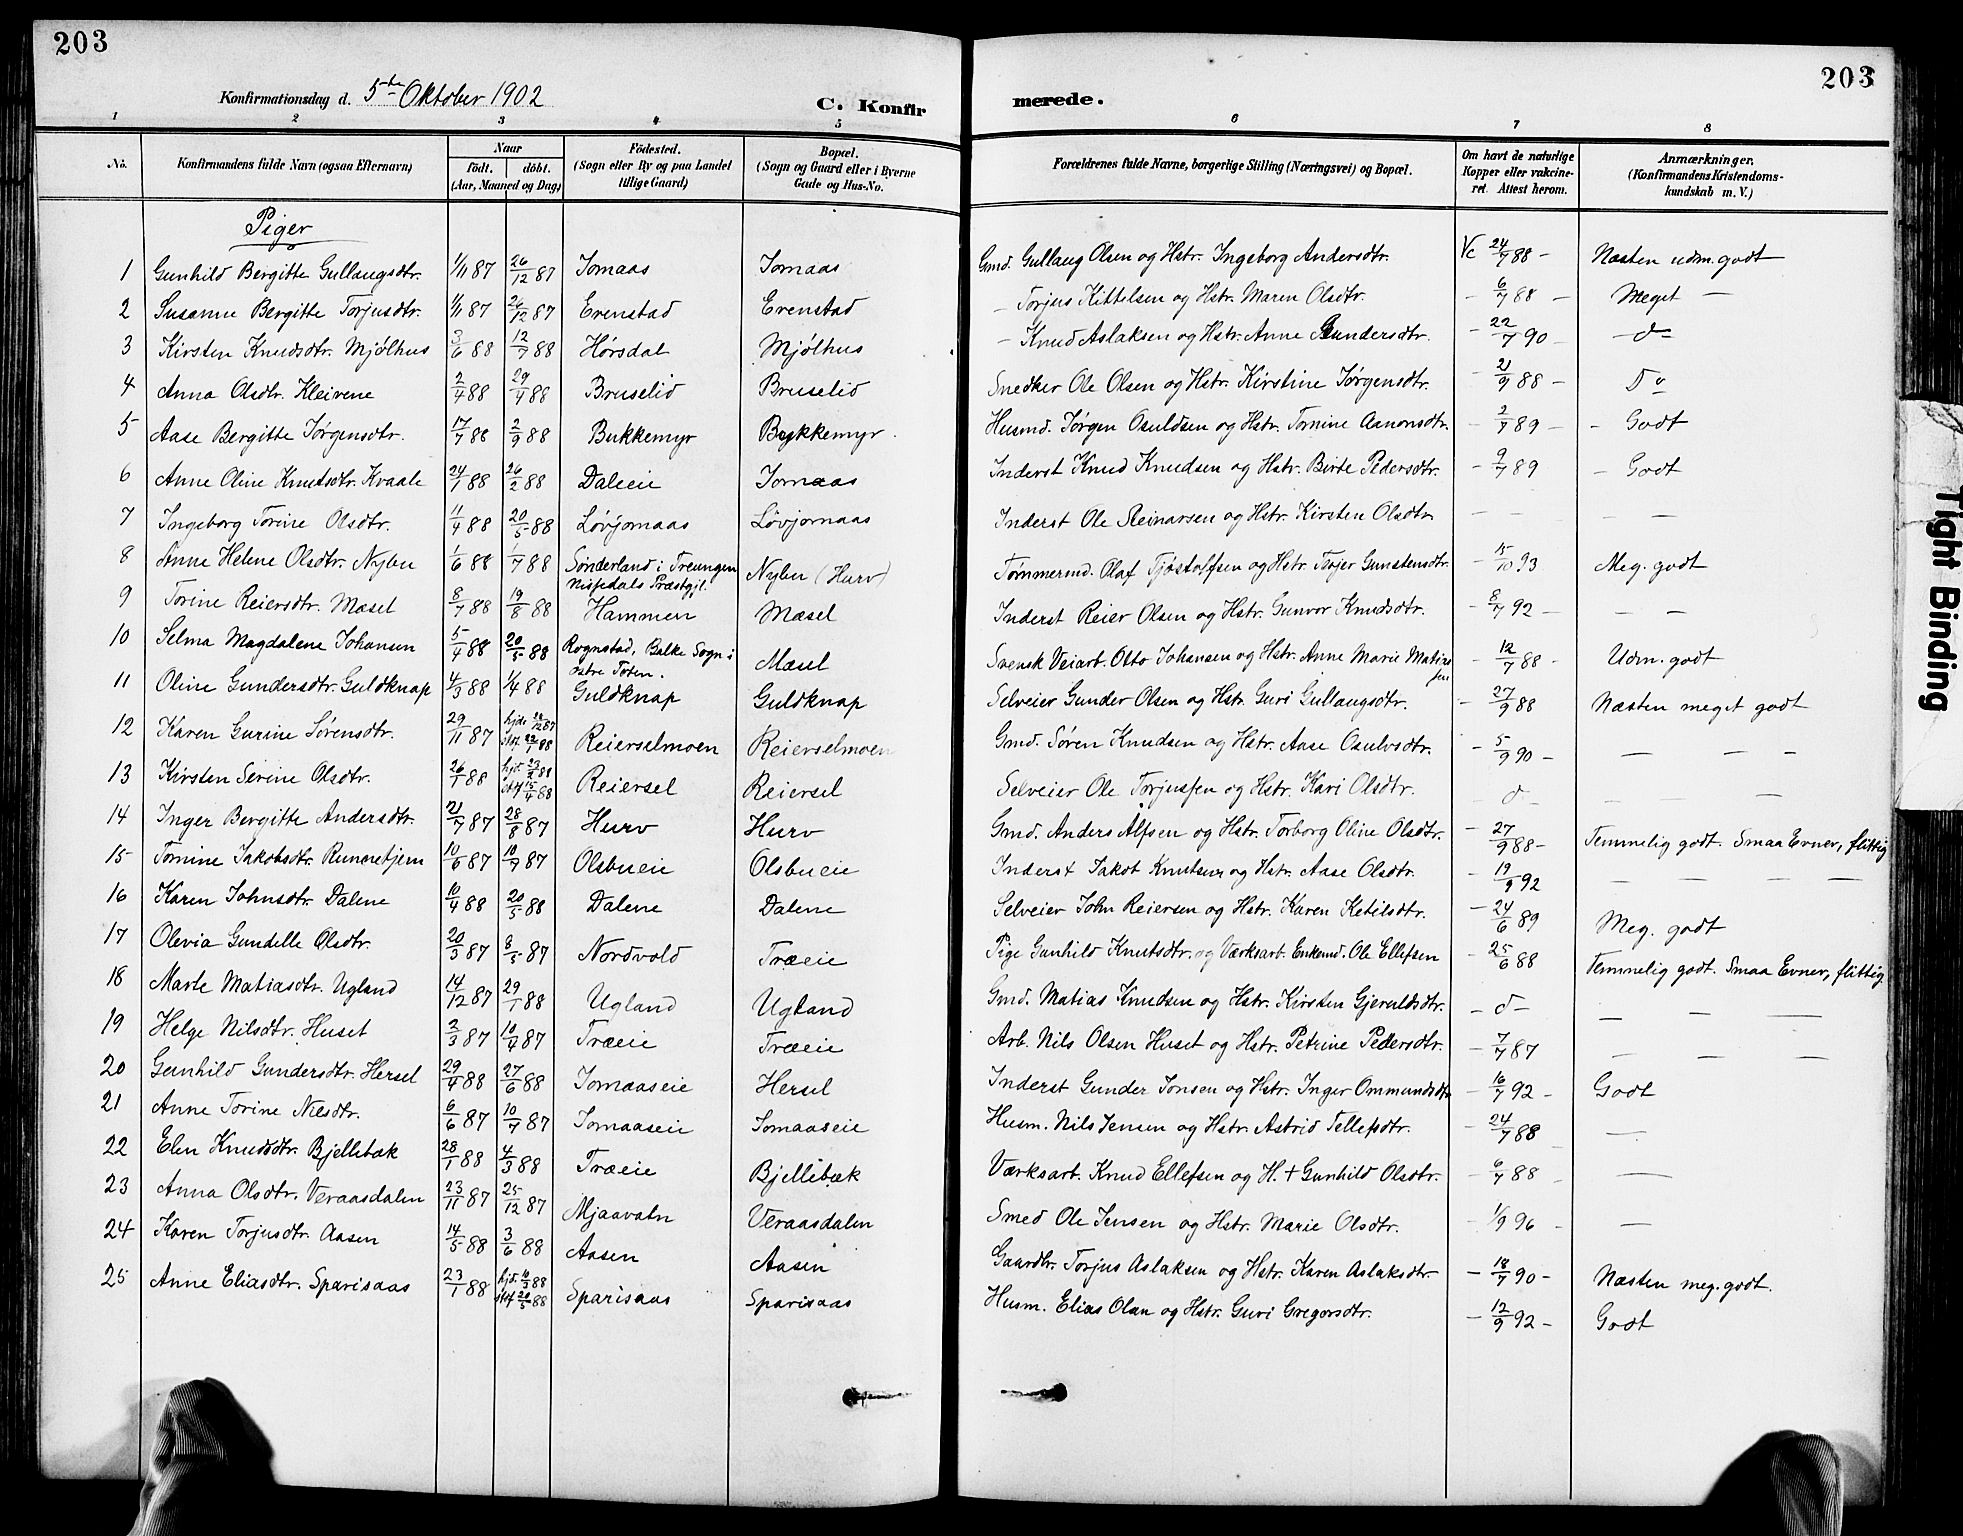 203
203
Konfirmationsdag d. 5te Oktober 1902
C. Konfirmerede.
1 2 3 4 5 6 7 8
No. | Konfirmandens fulde Navn (ogsaa Efternavn) | Naar født. døbt. (Aar, Maaned og Dag) | Fødested. (Sogn eller By og paa Landet tillige Gaard) | Bopæl. (Sogn og Gaard eller i Byerne Gade og Hus-No. | Forældrenes fulde Navne, borgerlige Stilling (Næringsvei) og Bopæl. | Om havt de naturlige Kopper eller vakcineret. Attest herom. | Anmærkninger. (Konfirmandens Kristendomskundskab m. V.)
Piger
1 Gunhild Bergitte Gullaugsdtr. 1/11 87 26/12 87 Jomaas Jomaas Gmd. Gullaug Olsen og Hstr. Ingeborg Andersdtr. Vc 24/7 88 – Næsten udm. godt
2 Susanne Bergitte Torjusdtr. 1/11 87 26/12 87 Evenstad Evenstad – Torjus Kittelsen og Hstr. Maren Olsdtr. – 6/7 88 – Meget –
3 Kirsten Knudsdtr. Mjølhus 3/6 88 12/7 88 Hørsdal Mjølhus – Knud Aslaksen og Hstr. Anne Gundersdtr. – 22/7 90 – – d –
4 Anna Olsdtr. Kleivene 2/4 88 29/4 88 Bruselid Bruselid Snedker Ole Olsen og Hstr. Kirstine Jørgensdtr. – 21/9 88 – Do
5 Aase Bergitte Jørgensdtr. 17/7 88 2/9 88 Bukkemyr Bukkemyr. Husmd. Jørgen Osuldsen og Hstr. Tomine Aanonsdtr. – 2/7 89 – – Godt
6 Anne Oline Knutsdtr. Kvaale 24/1 88 26/2 88 Daleeie Jomaas Inderst Knud Knudsen og Hstr. Birte Pedersdtr. – 9/7 89 – Godt
7 Ingeborg Torine Olsdtr. 11/4 88 20/5 88 Løvjomaas Løvjomaas Inderst Ole Reinarsen og Hstr. Kirsten Olsdtr. – – – –
8 Anne Helene Olsdtr. Nybu 1/6 88 1/7 88 Sønderland i Treungen Nissedals Præstgjl. Nybu (Hurv) Tømmermd. Olaf Tjøstolfsen og Hstr. Torjer Gunstensdtr. – 15/10 93 Meg. godt
9 Torine Reiersdtr. Mæsel 8/7 88 19/8 88 Hammen Mæsel Inderst Reier Olsen og Hstr. Gunvor Knudsdtr. – 8/7 92 – – –
10 Selma Magdalene Johansen 5/4 88 20/5 88 Rognstad, Balke Sogn i østre Toten. Mæsel Svensk Veiarb. Otto Johansen og Hstr. Anne Marie Matisen – 12/7 88 – Udm. godt
11 Oline Gundersdtr. Guldknap 4/3 88 1/4 88 Guldknap Guldknap Selveier Gunder Olsen og Hstr. Guri Gullaugsdtr. – 27/9 88 Næsten meget godt
12 Karen Gurine Sørensdtr. 29/11 87 hjdø 24/12 87 stf 22/1 88 Reierselmoen Reierselmoen Gmd. Søren Knudsen og Hstr. Aase Osulvsdtr. – 5/9 90 – – – –
13 Kirsten Serine Olsdtr. 26/1 88 hjd. 23/2 88 stf 15/4 88 Reiersel Reiersel Selveier Ole Torjussen og Hstr. Kari Olsdtr. – d – – – –
14 Inger Bergitte Andersdtr. 21/7 87 28/8 87 Hurv Hurv Gmd. Anders Alfsen og Hstr. Torborg Oline Olsdtr. – 27/9 88 – Temmelig godt. Smaa Evner, flittig
15 Tomine Jakobsdtr. Runnetjern 10/6 87 10/7 87 Olsbueie Olsbueie Inderst Jakob Knutsen og Hstr. Aase Olsdtr. – 19/9 92 – – – –
16 Karen Johnsdtr. Dalene 10/4 88 20/5 88 Dalene Dalene Selveier John Reiersen og Hstr. Karen Ketilsdtr. – 24/6 89 Meg. godt
17 Olevia Gundelle Olsdtr. 20/3 87 8/5 87 Nordvold Træeie Pige Gunhild Knutsdtr. og Værksarb. Enkemd. Ole Ellefsen – 25/6 88 Temmelig godt. Smaa Evner, flittig
18 Marte Matiasdtr. Ugland 14/12 87 29/1 88 Ugland Ugland Gmd. Matias Knudsen og Hstr. Kirsten Gjeruldsdtr. – d – – – –
19 Helge Nilsdtr. Huset 2/3 87 10/4 87 Træeie Træeie Arb. Nils Olsen Huset og Hstr. Petrine Pedersdtr. – 7/7 87 – – –
20 Gunhild Gundersdtr. Hersel 29/4 88 27/6 88 Jomaaseie Hersel Inderst Gunder Jonsen og Hstr. Inger Ommundsdtr – 16/7 92 – Godt
21 Anne Torine Nilsdtr. 6/6 87 10/7 87 Jomaaseie Jomaaseie Husm. Nils Jensen og Hstr. Astrid Tellefsdtr. – 24/7 88 –
22 Elen Knudsdtr. Bjellebæk 28/1 88 4/3 88 Træeie Bjellebæk Værksarb. Knud Ellefsen og H. + Gunhild Olsdtr. – 6/7 88 – –
23 Anna Olsdtr. Veraasdalen 23/11 87 25/12 87 Mjaavatn Veraasdalen Smed Ole Jensen og Hstr. Marie Olsdtr. – 1/9 96 – –
24 Karen Torjusdtr. Aasen 14/5 88 3/6 88 Aasen Aasen Gaardbr. Torjus Aslaksen og Hstr. Karen Aslaksdtr. – 18/7 90 – Næsten meg. godt.
25 Anne Eliasdtr. Sparisaas 23/1 88 hjd. 10/3 88 stf 20/5 88 Sparisaas Sparisaas Husm. Elias Olsen og Hstr. Guri Gregorsdtr. – 12/9 92 – Godt
Tight Binding